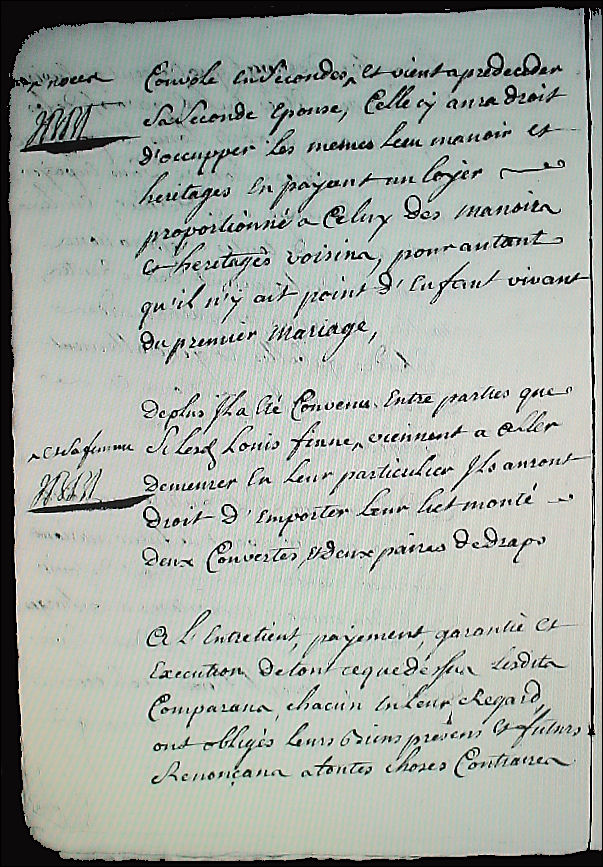 ^ noces
Convole en secondes ^ et vient a predeceder
sa seconde epouse, celle cy aura droit
d'occupper les memes lieu manoir et
heritages en payant un loyer
proportionné a celuy des manoirs
et heritages voisins, pour autant
qu'il n'y ait point d'enfant vivant
du premier mariage,
De plus Il a été Convenu Entre parties que
^ et sa femme
si led Louis finne ^ viennent a aller
demeurer en leur particulier Ils auront
droit d'emporter leur lict monté
deux Couvertes et deux paires de draps
A l'Entretient, payement, garantie et
Execution de tout ce que dessus lesdits
Comparans, chacun en leur Regard,
ont obligés leurs biens presens et futurs
Renonçans a toutes choses Contraires